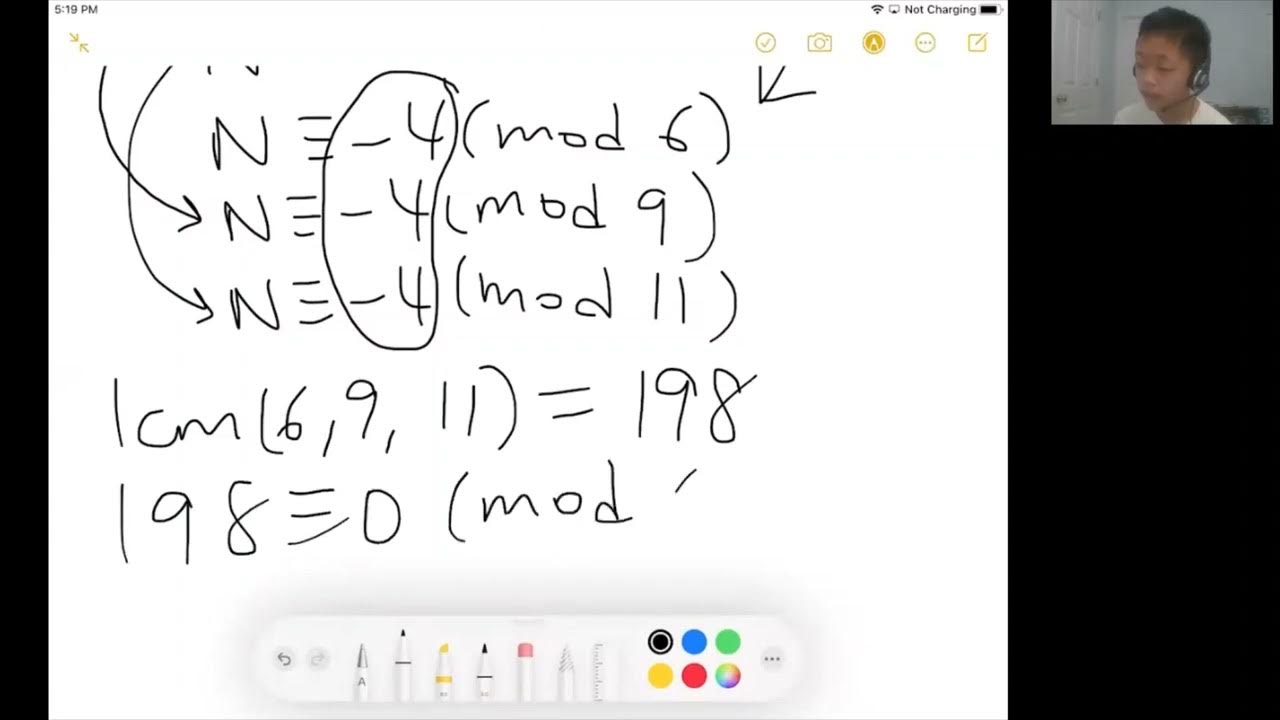 5:19 PM Not Charging
N ≡ -4 (mod 6)
N ≡ -4 (mod 9)
N ≡ -4 (mod 11)
lcm(6, 9, 11) = 198
198 ≡ 0 (mod
A